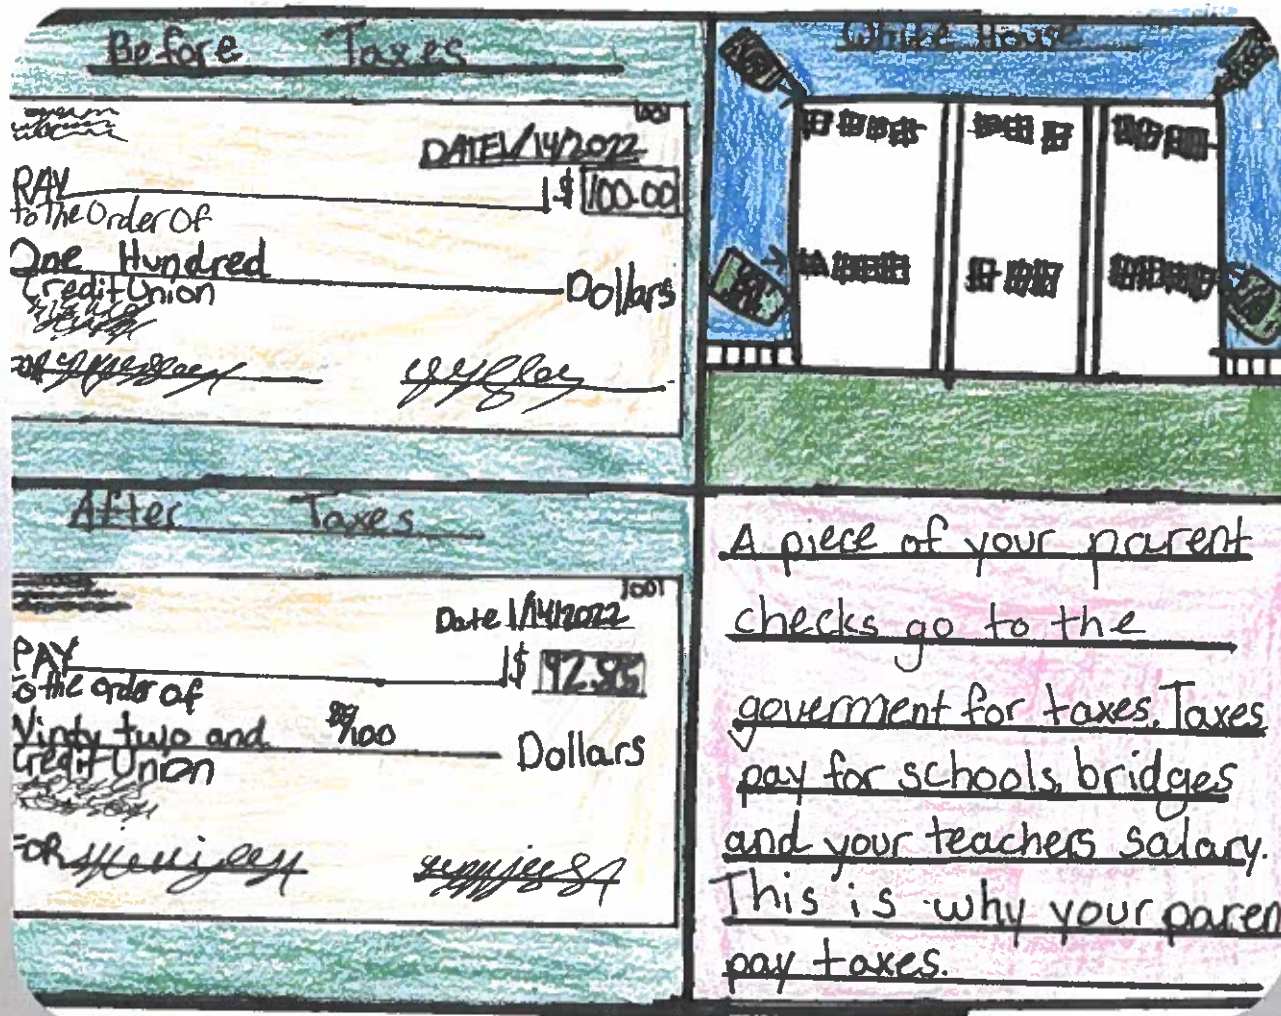 Before Taxes
1001
DATE 1/14/2022
PAY $ 100.00
to The Order Of
One Hundred Dollars
Credit Union
FOR
After Taxes
1001
Date 1/14/2022
PAY $ 92.85
to the order of
Ninty two and /100 Dollars
Credit Union
FOR
White House
A piece of your parent
checks go to the
goverment for taxes. Taxes
pay for schools, bridges
and your teachers salary.
This is why your paren
pay taxes.